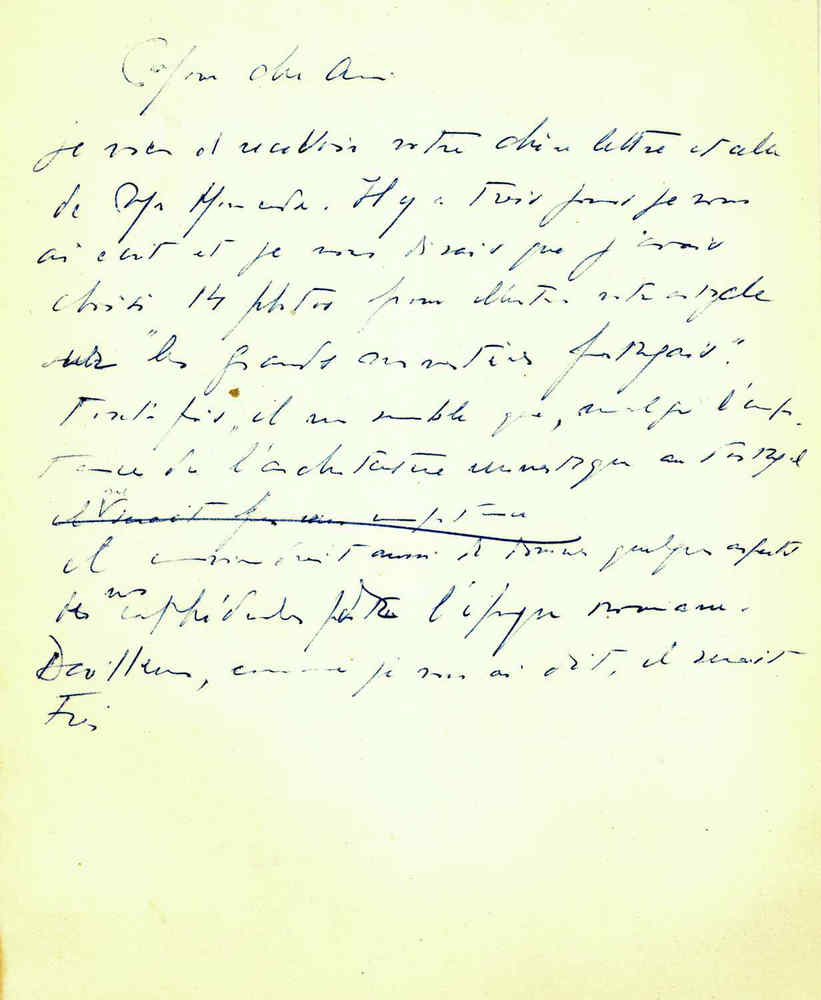 cher Ami
Je viens de recevoir votre chère lettre et celle
de Il y a trois jours je vous
ai écrit et je vous disais que j'avais
choisi 14 photos pour votre article
sur "les grands monastères portugais".
Toutefois, il me semble que, malgré l'impor-
tance de l'architecture monastique au Portugal
il serait
il conviendrait aussi de donner quelques aspects
des cathédrales de l'époque romane.
D'ailleurs, comme je vous ai dit, il serait
Très